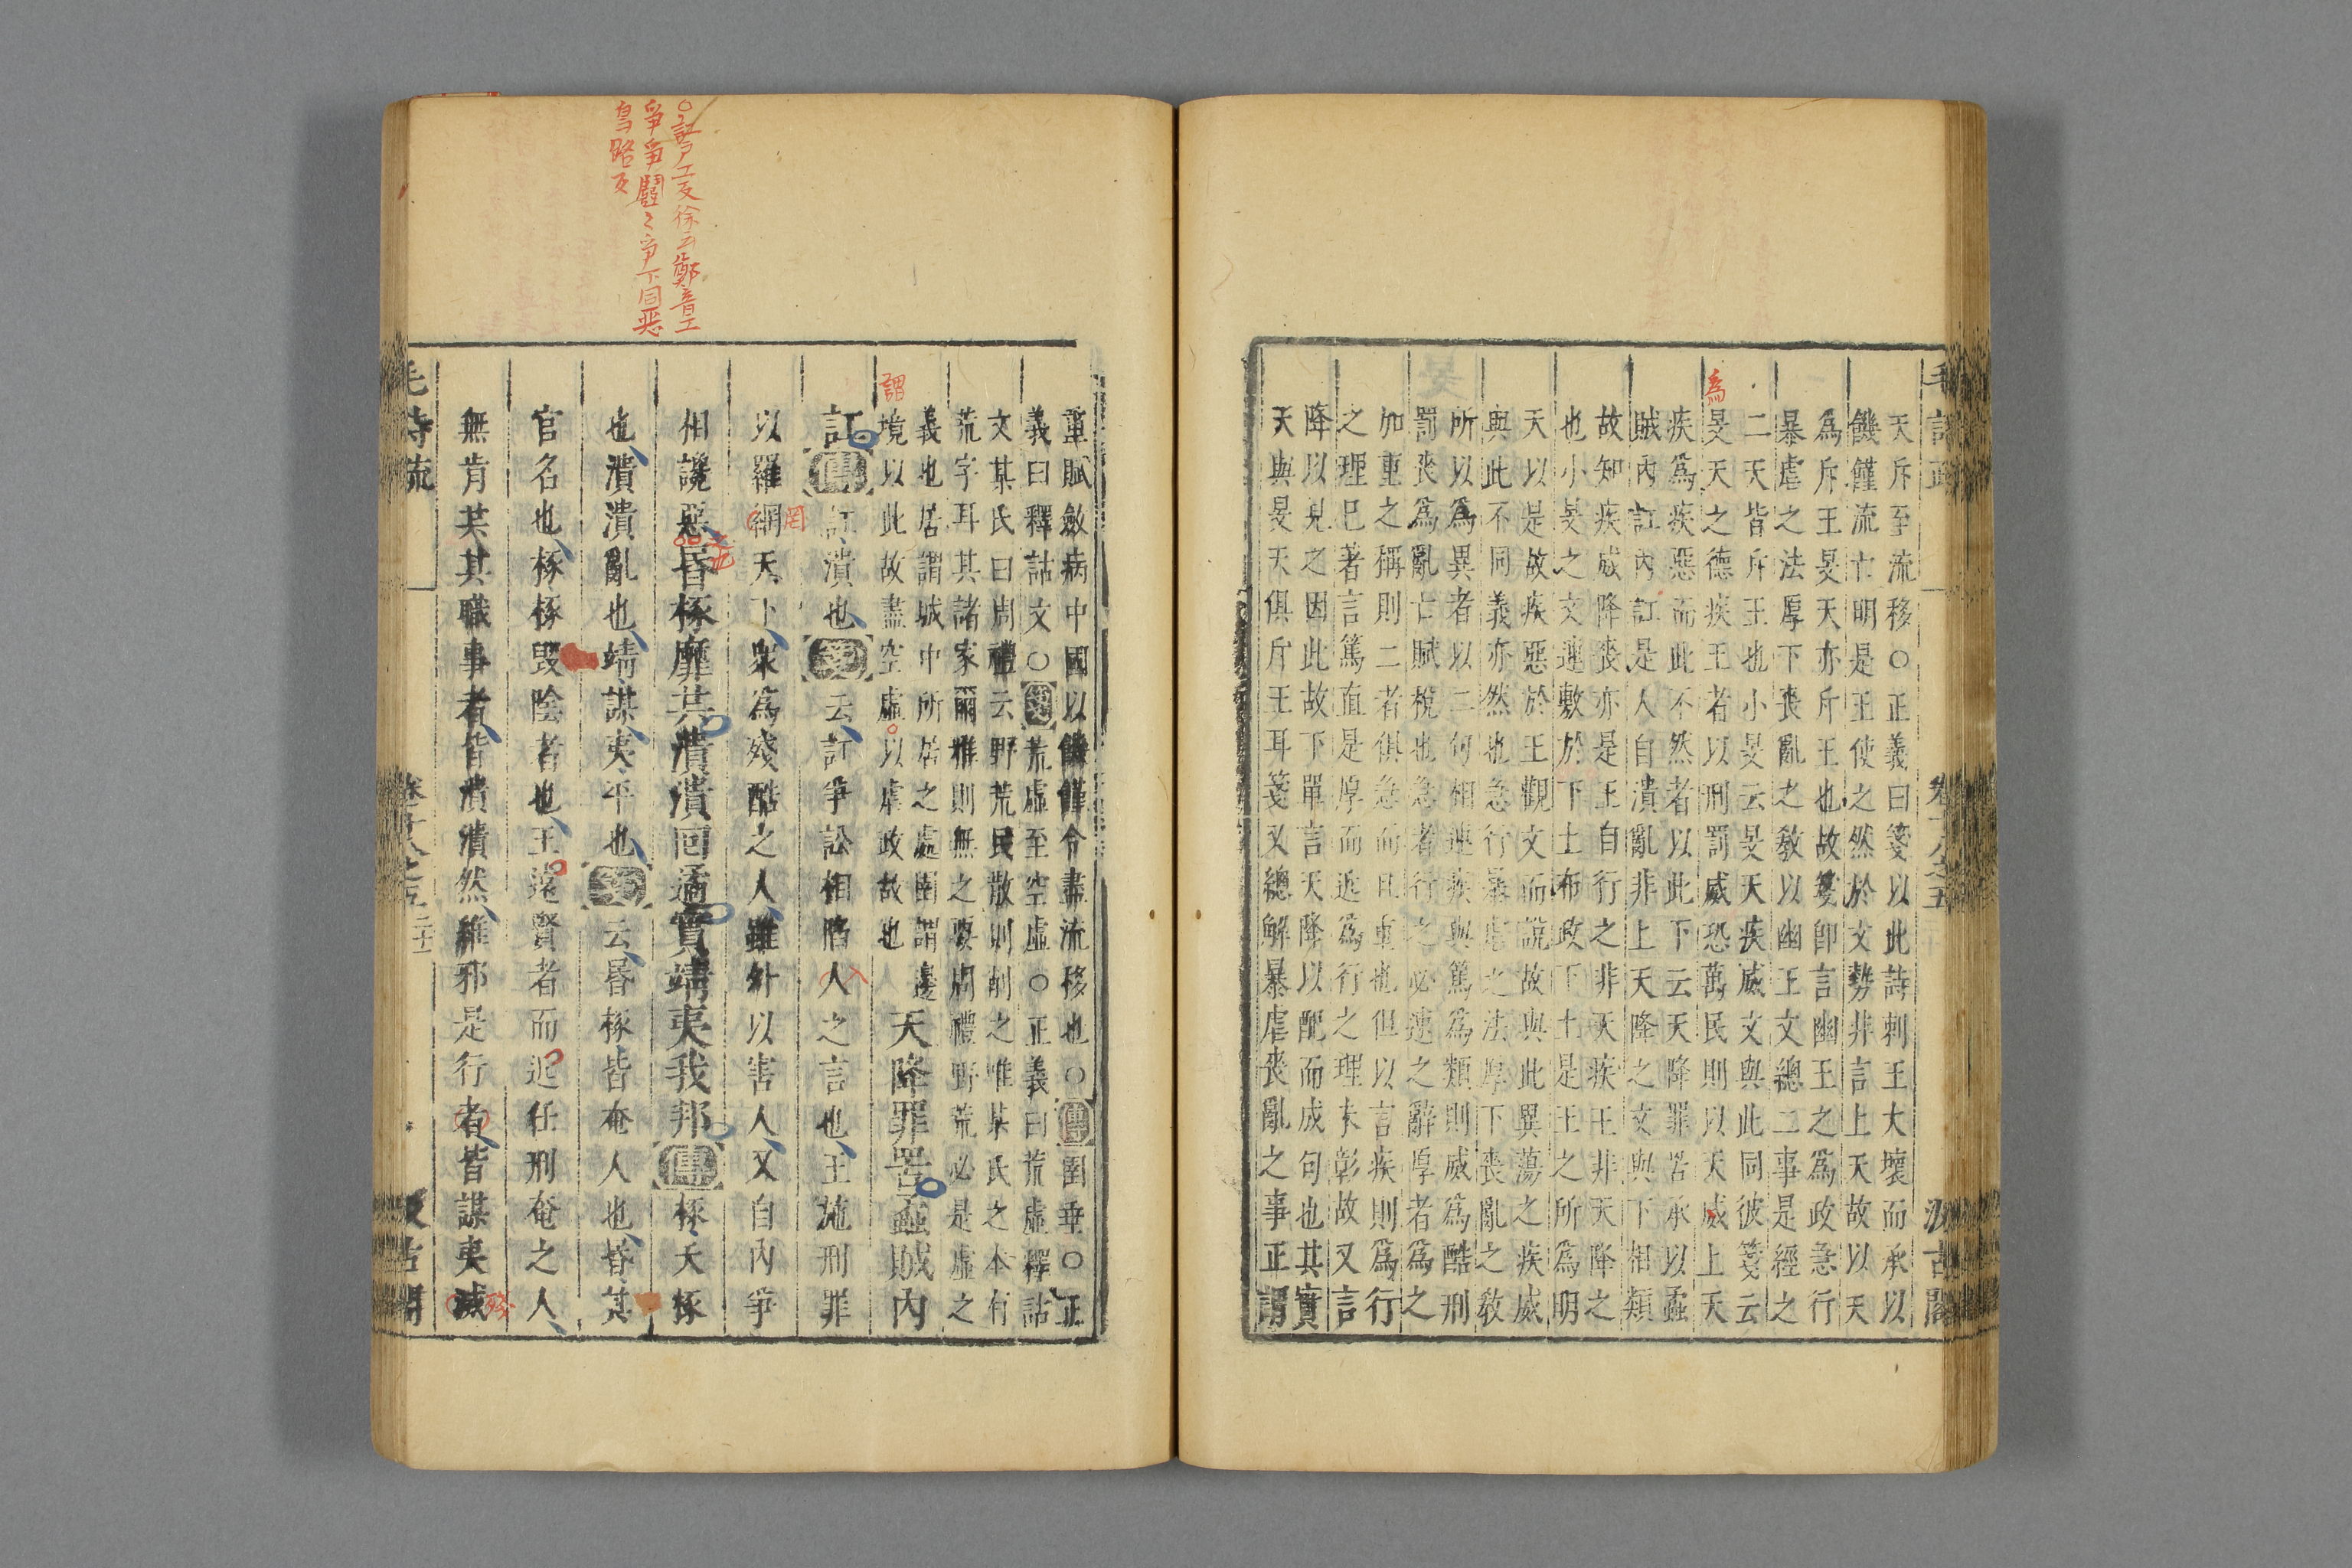 天斥至流移○正義曰箋以此詩刺王大壞而承以
饑饉流亡明是王使之然於文勢非言上天故以天
為斥王旻天亦斥王也故箋卽言幽王之為政急行
暴虐之法厚下喪亂之敎以幽王文總二事是經之
二天皆斥王也小旻云旻天疾威文與此同彼箋云
旻天之德疾王者以刑罰威恐萬民則以天威上天
為
疾為疾惡而此不然者以此下云天降罪罟承以蟊
賊內訌內訌是人自潰亂非上天降之文與下相類
故知疾威降喪亦是王自行之非天疾王非天降之
也小旻之文連敷於下土布政下土是王之所為明
天以是故疾惡於王觀文而說故與此異蕩之疾威
與此不同義亦然也急行暴虐之法厚下喪亂之敎
所以為異者以二句相連疾與篤為類則威為酷刑
罰喪為亂亡賦稅也急者行之必速之辭厚者為之
加重之稱則二者俱急而且重也但以言疾則為行
之理已著言篤直是厚而近為行之理未彰故又言
降以見之因此故下單言天降以配而成句也其實
天與旻天俱斥王耳箋又總解暴虐喪亂之事正謂
毛詩疏
卷十八之五
汲古閣
重賦斂病中國以饑饉令盡流移也○傳圉垂○正
義曰釋詁文○箋荒虛至空虛○正義曰荒虛釋詁
文某氏曰周禮云野荒民散則削之唯某氏之本有
荒字耳其諸家爾雅則無之要周禮野荒必是虛之
義也居謂城中所居之處圉謂邊
境以此故盡空虛以虐政故也
謂
天降罪罟蟊賊內
訌傳訌潰也箋云訌爭訟相陷人之言也王施刑罪
以羅網天下眾為殘酷之人雖外以害人又自內爭
罔
相讒惡昏椓靡共潰潰回遹實靖夷我邦傳椓夭椓
也潰潰亂也靖謀夷平也箋云昬椓皆奄人也昏其
官名也椓椓毀陰者也王遠賢者而近任刑奄之人
無肯共其職事者皆潰潰然維邪是行者皆謀夷滅
殘
○訌戶工反徐云鄭音工
爭爭鬬之爭下同惡
烏路反
毛詩疏
卷十八之五
二十二
汲古閣